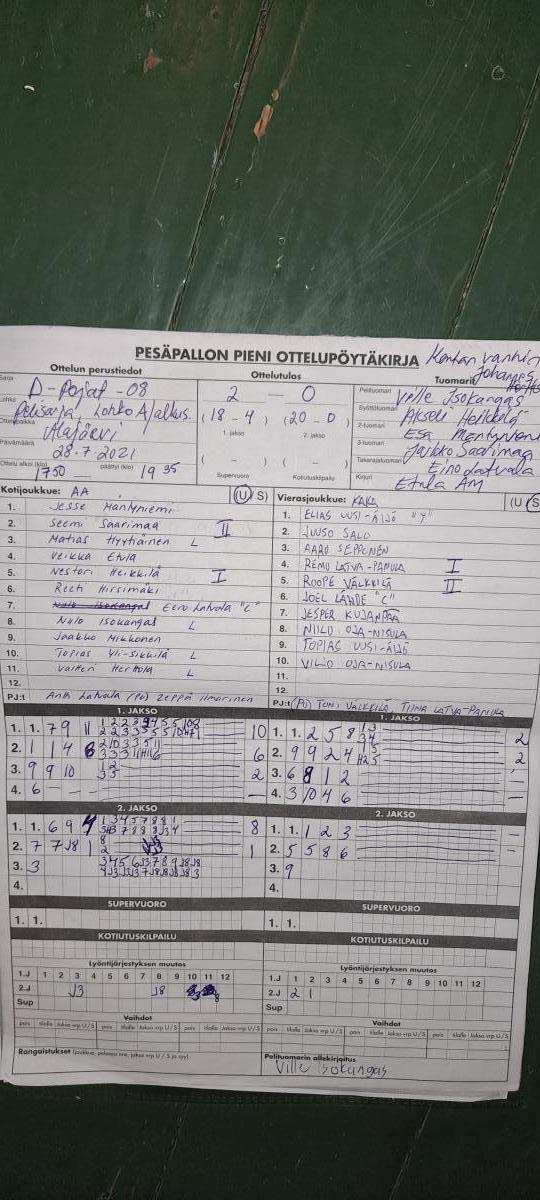 PESÄPALLON PIENI OTTELUPÖYTÄKIRJA
Kentän vanhin
Johannes
Ottelun perustiedot
Ottelutulos
Tuomarit
Sarja
D-Pojat -08
Lohko
Pelisarja, Lohko A/alkus.
Ottelupaikka
Alajärvi
Päivämäärä
28.7.2021
Ottelu alkoi (klo)
1750
päättyi (klo)
19 35
2 — 0
(18 - 4) (20 - 0)
1. jakso 2. jakso
( - ) ( - )
Supervuoro Kotiutuskilpailu
Pelituomari
Ville Isokangas
Syöttötuomari
Akseli Heikkilä
2-tuomari
Esa Mäntyniemi
3-tuomari
Jarkko Saarimaa
Takarajatuomari
Eino Latvala
Kirjuri
Etula AM
Kotijoukkue: AA (U/S)
1. Jesse Mäntyniemi
2. Seemi Saarimaa II
3. Matias Hyytiäinen L
4. Veikka Etula
5. Nestori Heikkilä I
6. Reeti Hirsimäki
7. Eero Latvala "C"
8. Niilo Isokangas L
9. Jaakko Mikkonen
10. Topias Yli-Sikkilä L
11. Valtteri Herttola L
12.
PJ:t Antti Latvala (PJ) Seppä Ilmarinen
Vierasjoukkue: KAKA (U/S)
1. ELIAS UUSI-ÄIJÖ
2. JUUSO SALO
3. AARO SEPPONEN
4. REMU LATVA-PANULA I
5. ROOPE VÄLKKILÄ II
6. JOEL LÄHDE "C"
7. JESPER KUJANPÄÄ
8. NIILO OJA-NISULA
9. TOPIAS UUSI-ÄIJÖ
10. VILJO OJA-NISULA
11.
12.
PJ:t (PJ) TONI VÄLKKILÄ, TIINA LATVA-PANULA
1. JAKSO
1. 1. 7 9 11
10
2. 1 1 4 8
6
3. 9 9 10
2
4. 6 - -
—
1. JAKSO
1. 1. 2 5 8
2
2. 9 9 2 4
2
3. 6 8 1 2
—
4. 3 10 4 6
—
2. JAKSO
1. 1. 6 9 4
8
2. 7 7 J8 1
1
3. 3
4.
2. JAKSO
1. 1. 1 2 3
2. 5 5 8 6
—
3. 9
4.
SUPERVUORO
1. 1.
SUPERVUORO
1. 1.
KOTIUTUSKILPAILU
KOTIUTUSKILPAILU
Lyöntijärjestyksen muutos
1.J 1 2 3 4 5 6 7 8 9 10 11 12
2.J J3 J8
Sup
Lyöntijärjestyksen muutos
1.J 1 2 3 4 5 6 7 8 9 10 11 12
2.J 2 1
Sup
Vaihdot
pois tilalle Jakso vrp U / S pois tilalle Jakso vrp U / S
Vaihdot
pois tilalle Jakso vrp U / S pois tilalle Jakso vrp U / S
Rangaistukset (joukkue, pelaaja nro, jakso vrp U / S ja syy)
Pelituomarin allekirjoitus
Ville Isokangas